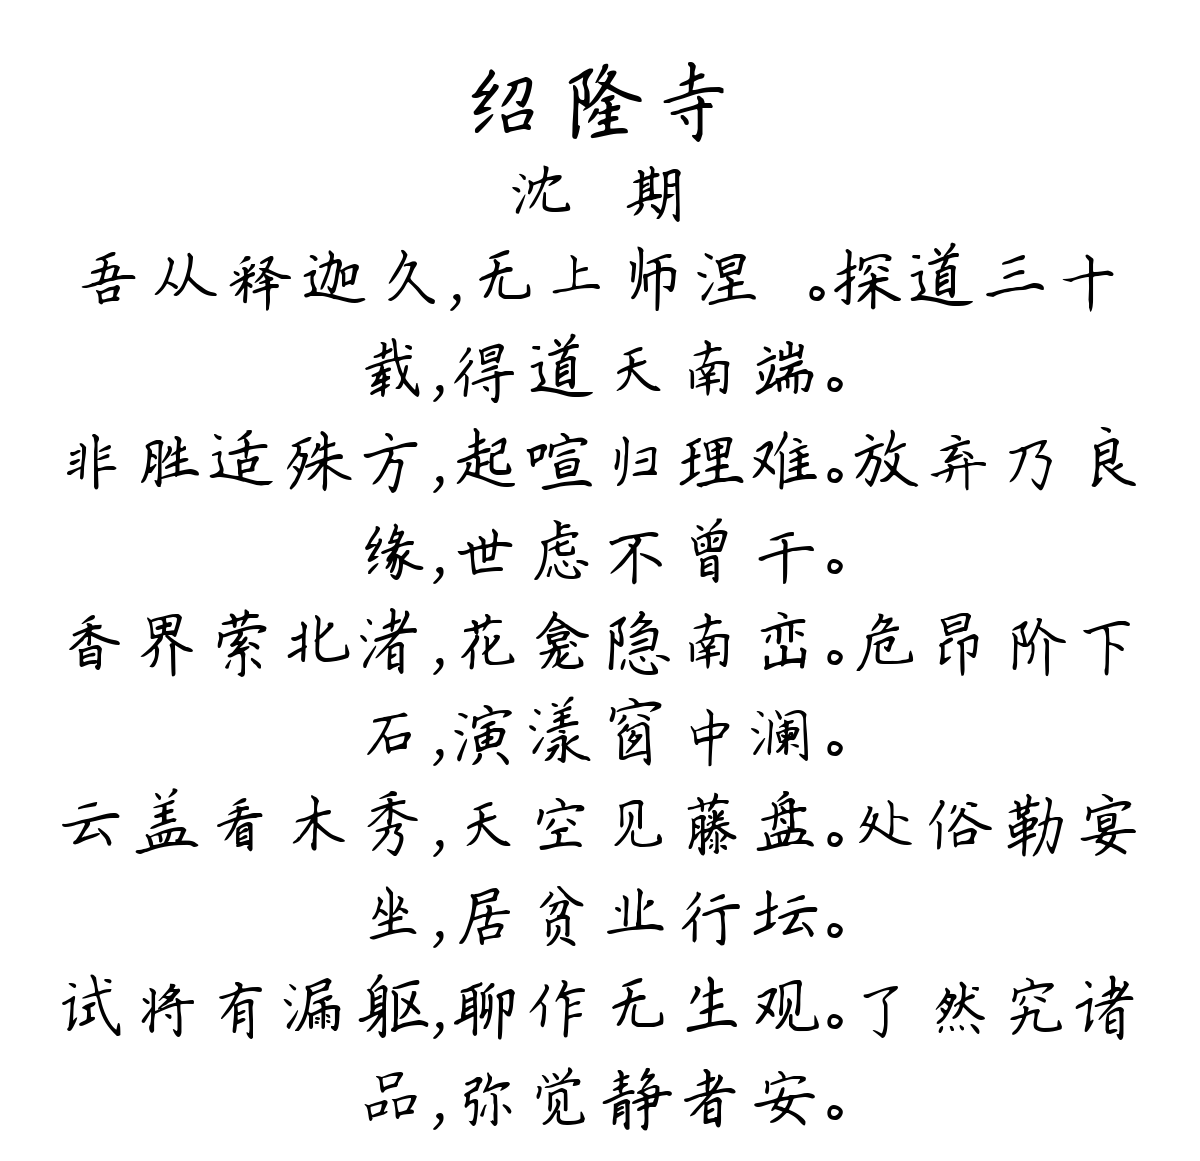 绍隆寺
沈 期
吾从释迦久,无上师涅 。探道三十
载,得道天南端。
非胜适殊方,起喧归理难。放弃乃良
缘,世虑不曾干。
香界萦北渚,花龛隐南峦。危昂阶下
石,演漾窗中澜。
云盖看木秀,天空见藤盘。处俗勒宴
坐,居贫业行坛。
试将有漏躯,聊作无生观。了然究诸
品,弥觉静者安。